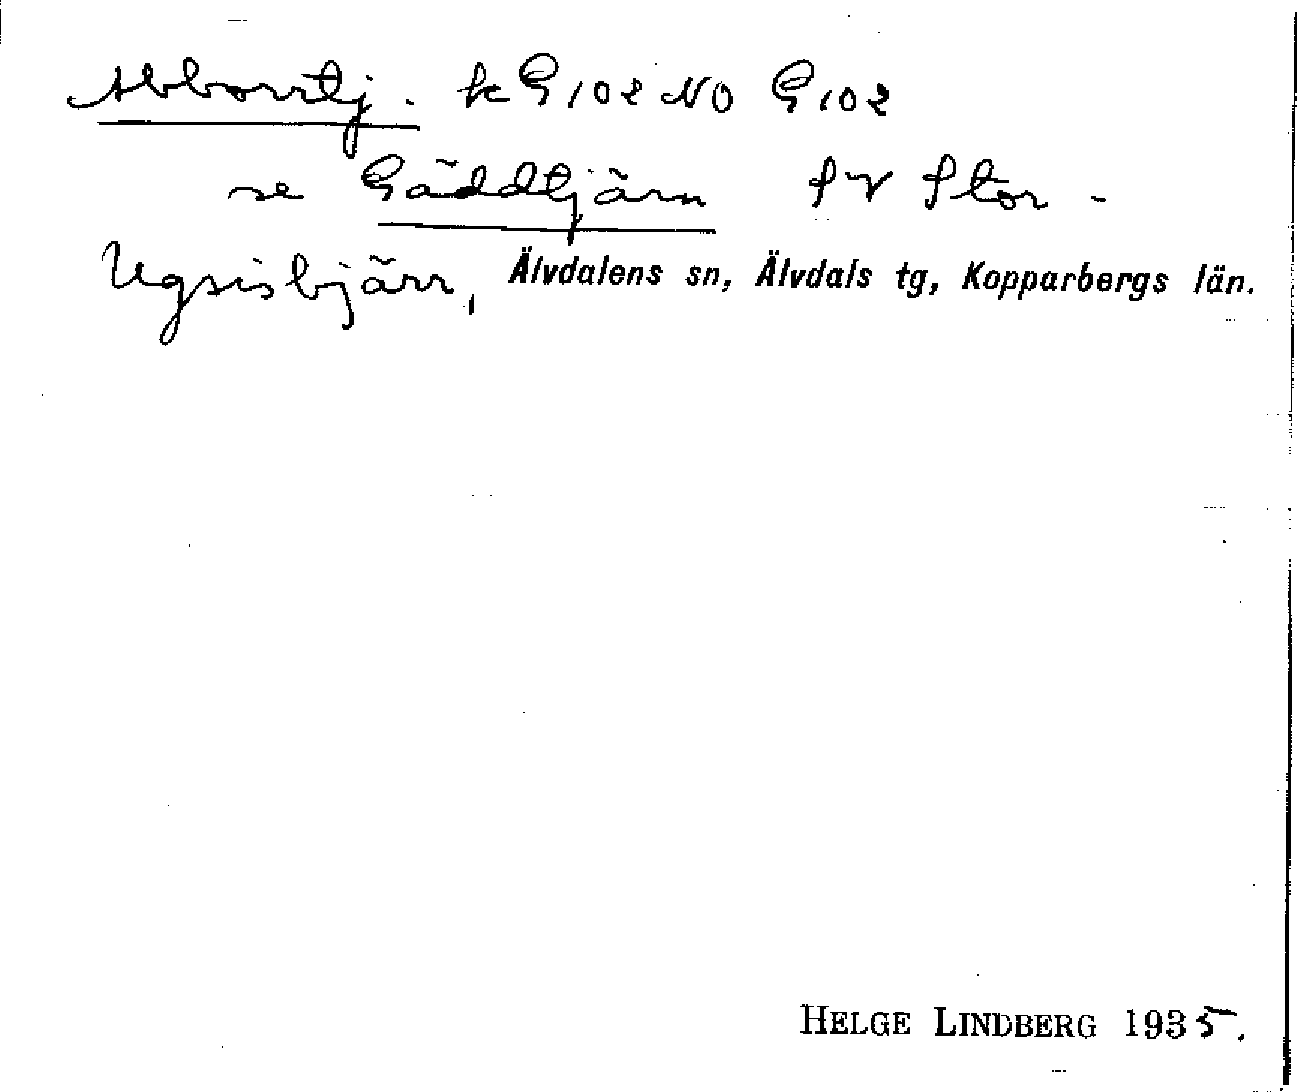 Abborrtj. k G 102 NO G 102
se Gäddtjärn SV Stor-
Ugsisbjärr, Älvdalens sn, Älvdals tg, Kopparbergs län.
HELGE LINDBERG 1935.